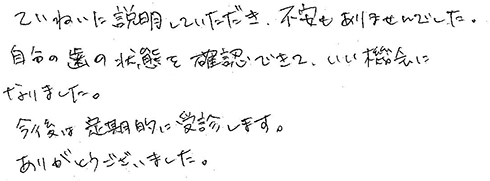 ていねいに説明していただき、不安もありませんでした。
自分の歯の状態を確認できて、いい機会に
なりました。
今後は定期的に受診します。
ありがとうございました。